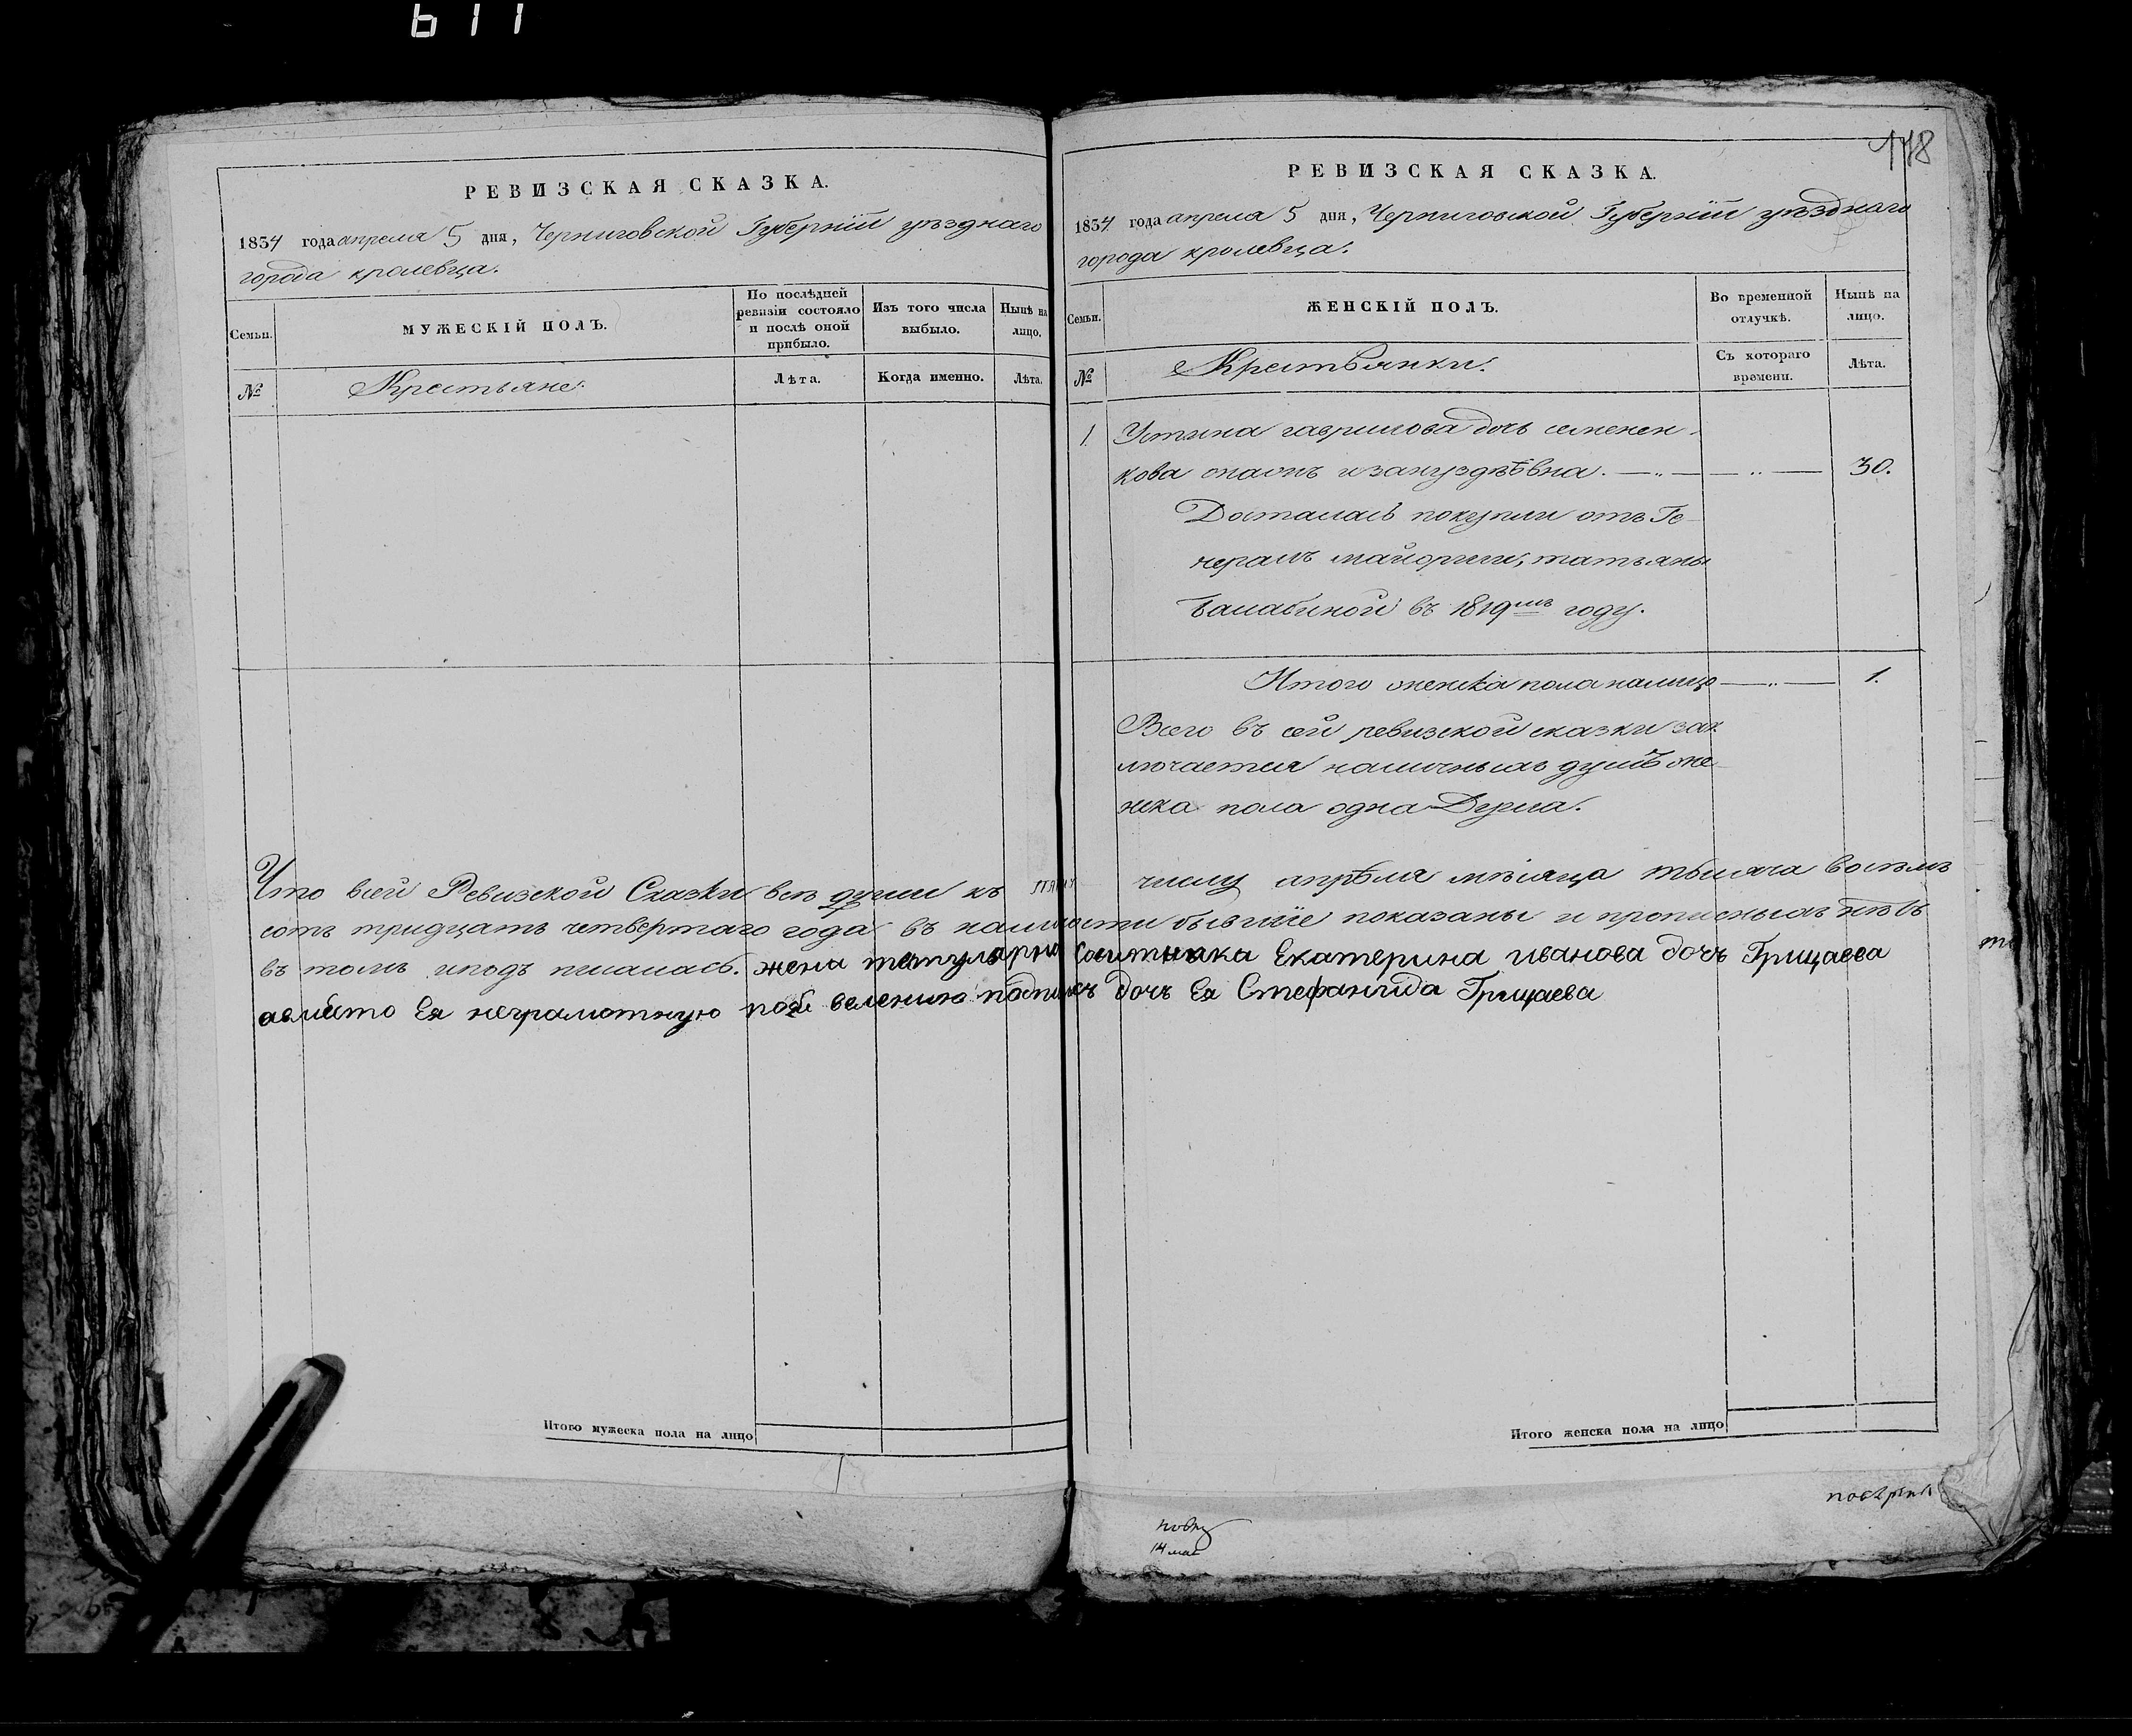 611
РЕВИЗСКАЯ СКАЗКА.
1834 года апреля 5 дня, Черниговской Губернїи уѣзднаго
города кролевца.
Семьи.
МУЖЕСКІЙ ПОЛЪ.
По послѣдней ревизіи состояло и послѣ оной прибыло.
Изъ того числа выбыло.
Нынѣ на лицо.
№
Крестьяне.
Лѣта.
Когда именно.
Лѣта.
148
РЕВИЗСКАЯ СКАЗКА.
1834 года апреля 5 дня, Черниговской Губернїи уѣзднаго
города кролевца.
Семьи.
ЖЕНСКІЙ ПОЛЪ.
Во временной отлучкѣ.
Нынѣ на лицо.
№
Крестьянки.
Съ котораго времени.
Лѣта.
1. Устина гаврилова дочь семенен-
кова 30.
Досталась покупли отъ Ге-
нералъ майорши, татьяны
Балабиной въ 1819мъ году.
Итого женска пола налицо 1.
Всего въ сей ревизской сказки зак
лючается наличныхъ душъ же
нска пола одна Душа.
Что всей Ревизской Сказки всѣ души къ пятому числу апрѣля мѣсяца тысяча восемъ
сотъ тридцать четвертаго года въ наличности бывшїе показаны и прописныхъ нѣтъ
въ томъ жена титулярна Совитника Екатерина иванова дочъ Грищаева
авместо Ея неграмотную по велению подписъ дочъ Ея Стефанида Грищаева
Итого мужеска пола на лицо
Итого женска пола на лицо
14 мая